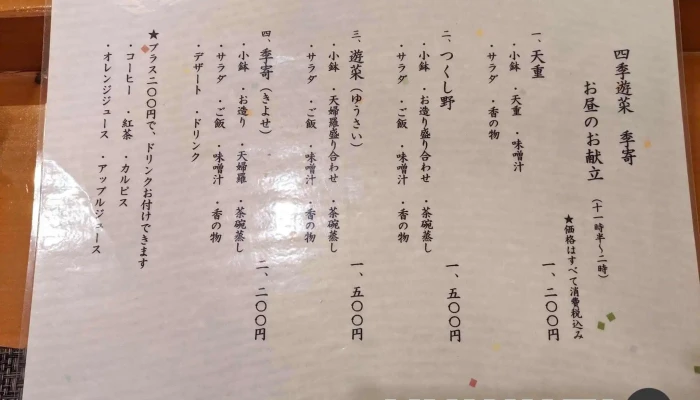 四季遊菜 季寄
お昼のお献立 (十一時半～二時)
★価格はすべて消費税込み
一、天重 一、二〇〇円
・小鉢 ・天重 ・味噌汁
・サラダ ・香の物
二、つくし野 一、五〇〇円
・小鉢 ・お造り盛り合わせ ・茶碗蒸し
・サラダ ・ご飯 ・味噌汁 ・香の物
三、遊菜(ゆうさい) 一、五〇〇円
・小鉢 ・天婦羅盛り合わせ ・茶碗蒸し
・サラダ ・ご飯 ・味噌汁 ・香の物
四、季寄(きよせ) 二、二〇〇円
・小鉢 ・お造り ・天婦羅 ・茶碗蒸し
・サラダ ・ご飯 ・味噌汁 ・香の物
・デザート ・ドリンク
★プラス二〇〇円で、ドリンクお付けできます
・コーヒー ・紅茶 ・カルピス
・オレンジジュース ・アップルジュース